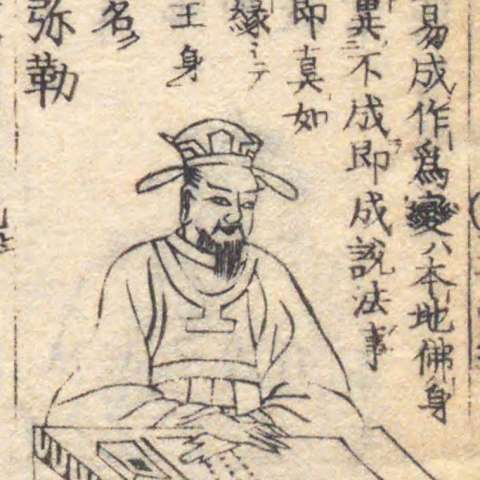 易成作爲変ハ本地佛身
異ニ不成即成説法事
即真如
縁ニテ
王身
名ノ
弥勒